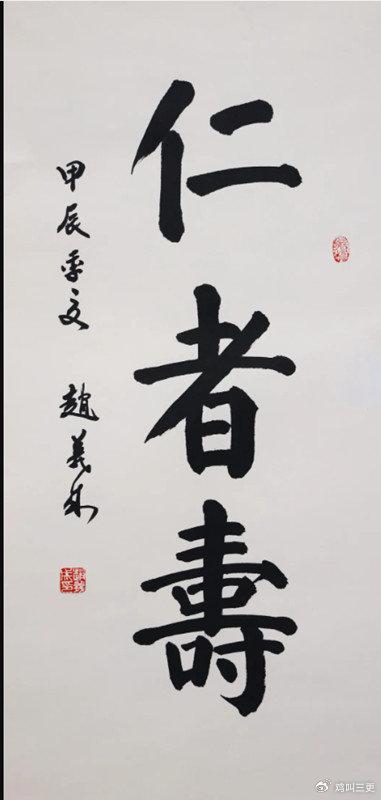 仁者壽
甲辰季夏 趙義成
鸡叫三更